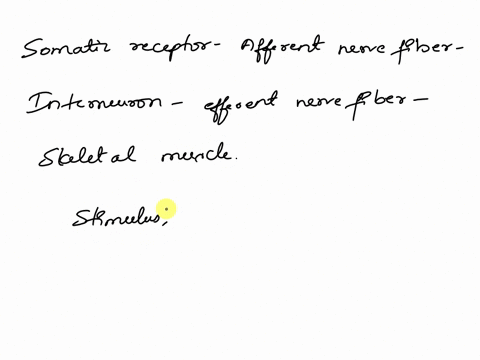 Somatic receptor- Afferent nerve fiber-
Interneuron - efferent nerve fiber-
Skeletal muscle.
Stimulus,